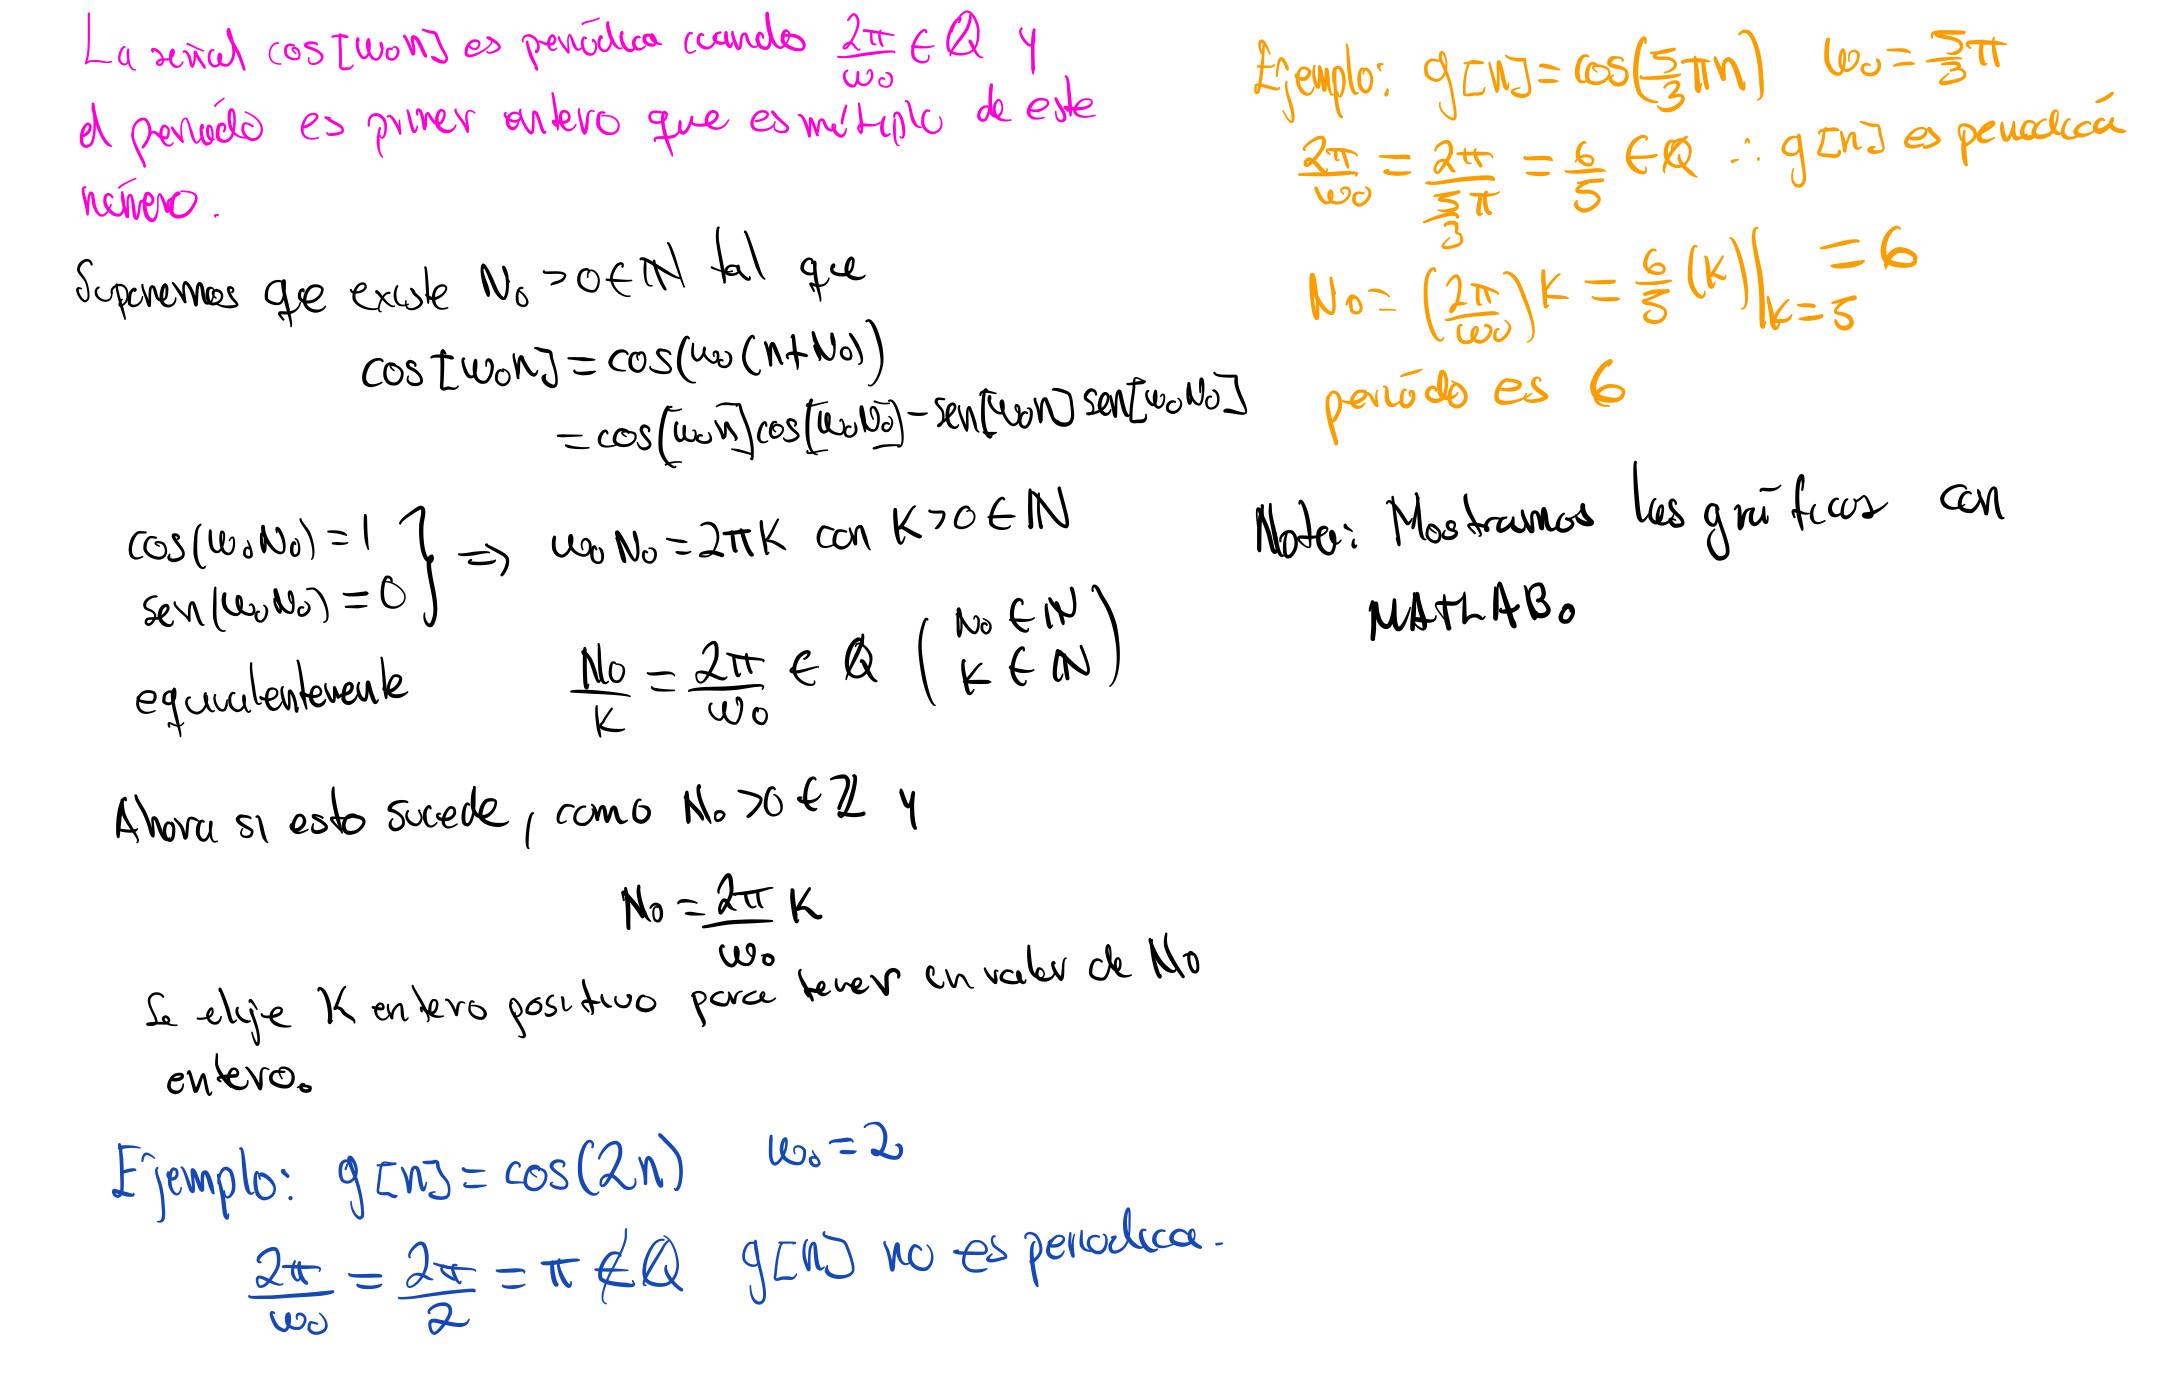 La señal cos[ω₀n] es periódica cuando 2π/ω₀ ∈ ℚ y
el periódo es primer entero que es múltiplo de este
número.
Suponemos que existe N₀ > 0 ∈ ℕ tal que
cos[ω₀n] = cos(ω₀(n+N₀))
= cos[ω₀n]cos[ω₀N₀] - sen[ω₀n] sen[ω₀N₀]
cos(ω₀N₀) = 1
sen(ω₀N₀) = 0 } ⇒ ω₀N₀ = 2πK con K > 0 ∈ ℕ
equivalentemente N₀/K = 2π/ω₀ ∈ ℚ (N₀ ∈ ℕ
K ∈ ℕ)
Ahora si esto sucede, como N₀ > 0 ∈ ℤ y
N₀ = 2π/ω₀ K
Se elije K entero positivo para tener un valor de N₀
entero.
Ejemplo: g[n] = cos(2n) ω₀ = 2
2π/ω₀ = 2π/2 = π ∉ ℚ g[n] no es periodica.
Ejemplo: g[n] = cos(5/3 πn) ω₀ = 5/3 π
2π/ω₀ = 2π/(5/3 π) = 6/5 ∈ ℚ ∴ g[n] es periodica
N₀ = (2π/ω₀)K = 6/5 (K)|K=5 = 6
periódo es 6
Nota: Mostramos las gráficas con
MATLAB.